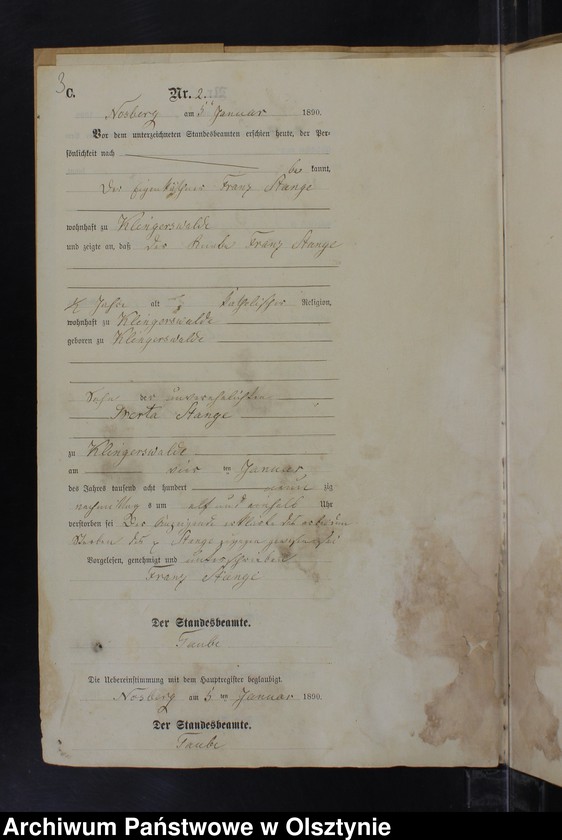 3
C.
Nr. 2.
Nosberg am 5 Januar 1890.
Vor dem unterzeichneten Standesbeamten erschien heute, der Per-
sönlichkeit nach
be kannt,
Der Eigenkäthner Franz Stange
wohnhaft zu Klingerswalde
und zeigte an, daß der Knabe Franz Stange
Jahre alt katholischer Religion,
wohnhaft zu Klingerswalde
geboren zu Klingerswalde
Sohn der unverehelichten
Stange
zu Klingerswalde
am vier ten Januar
des Jahres tausend acht hundert neun zig
nachmittag s um elf und einhalb Uhr
verstorben sei Der Anzeigende erklärte
Sterben des Stange zugegen gewesen sei
Vorgelesen, genehmigt und unterschrieben
Franz Stange
Der Standesbeamte.
Taube
Die Uebereinstimmung mit dem Hauptregister beglaubigt.
Nosberg am 5 ten Januar 1890.
Der Standesbeamte.
Taube
Archiwum Państwowe w Olsztynie